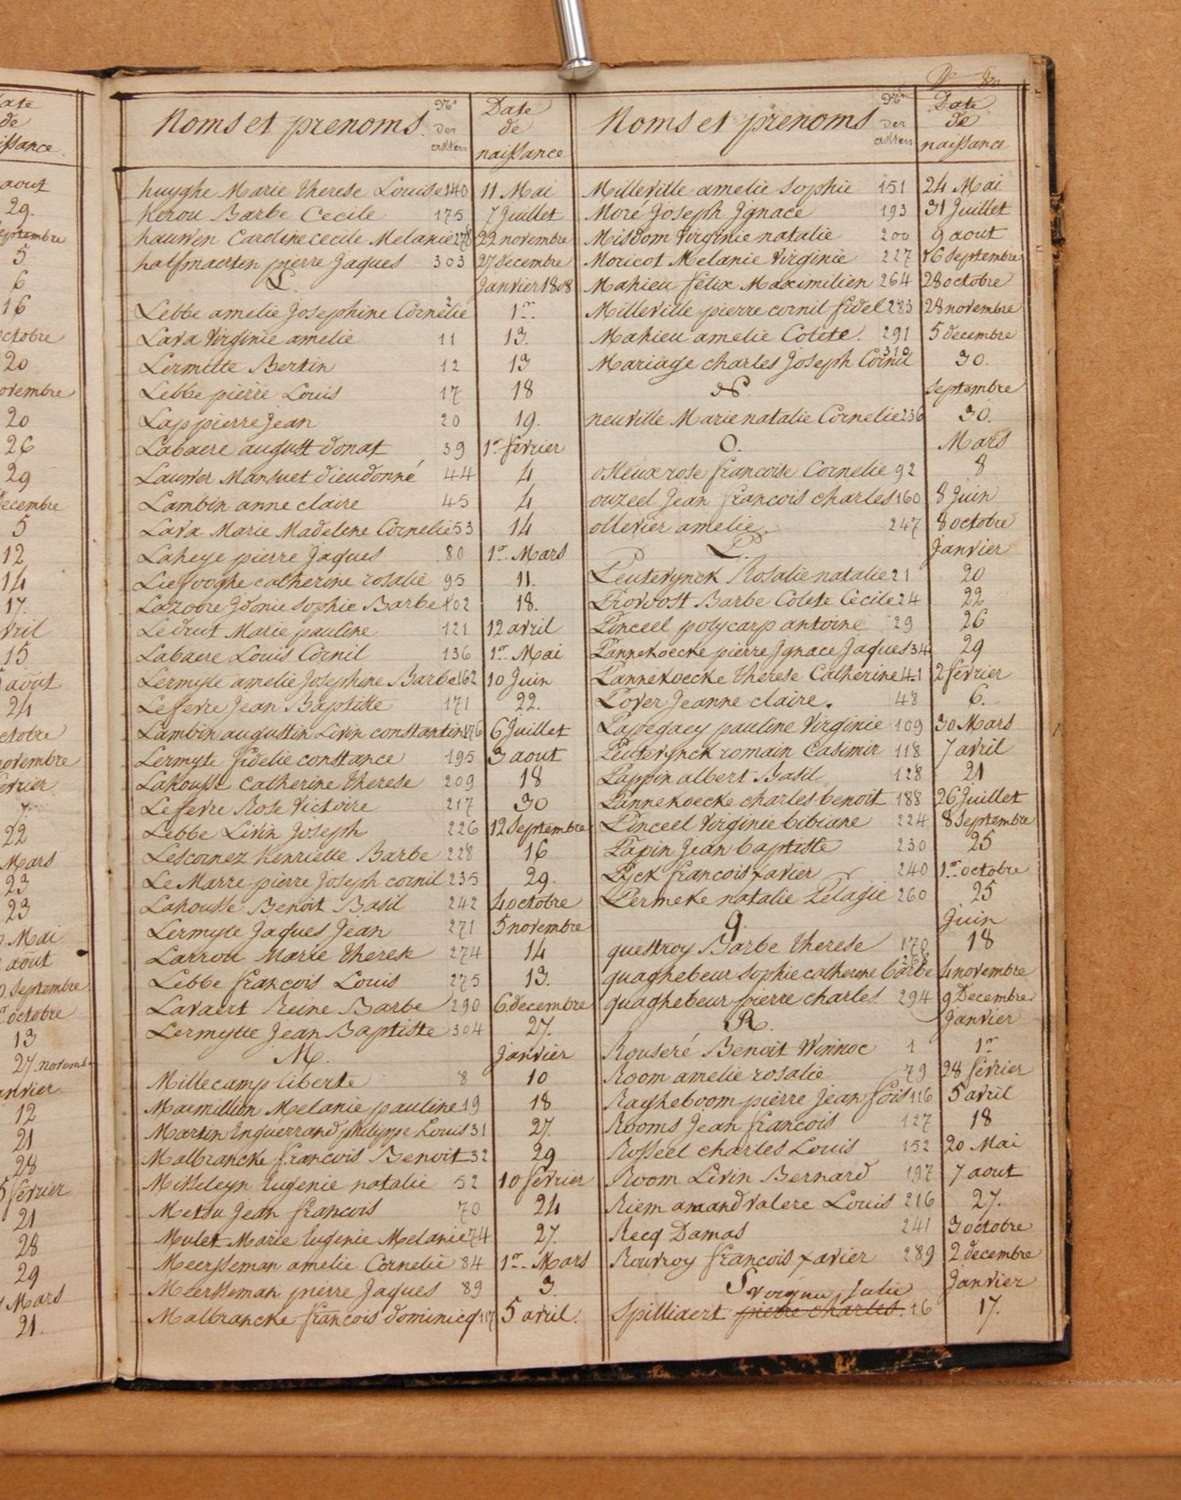 Date
de
naissance
aout
29.
septembre
5
6
16
octobre
20
novembre
20
26
29
decembre
5
12
14
17.
avril
15
aout
24
octobre
novembre
fevrier
7.
22
Mars
23
23
Mai
aout
septembre
octobre
13
27. novemb
janvier
12
21
28
5 fevrier
21
28
29
Mars
21.
Noms et prenoms. Nos des actes Date de naissance
huyghe Marie Therese Louise 140 11 Mai
herou Barbe Cecile 175 7 Juillet
hauwen Caroline cecile Melanie 278 22 novembre
halfmaerten pierre Jaques 303 27 decembre
L. Janvier 1808
Lebbe amelie Josephine Cornelie 2 1er
Lava Virginie amelie 11 13.
Lermitte Bertin 12 13
Lebbe pierre Louis 17 18
Lap pierre Jean 20 19.
Labaere august donat 39 1er fevrier
Lauwer Mansuet dieudonné 44 4
Lambin anne claire 45 4
Lava Marie Madelene Cornelie 53 14
Laheye pierre Jaques 80 1er Mars
Liefooghe catherine rosalie 95 11.
Lazoore Idonie sophie Barbe 102 18.
Ledrut Marie pauline 121 12 avril
Labaere Louis Cornil 136 1er Mai
Lermyte amelie Josephine Barbe 162 10 Juin
Lefevre Jean Baptiste 171 22.
Lambin augustin Livin constantin 176 6 Juillet
Lermyte fidelie constance 195 3 aout
Lahousse Catherine Therese 209 18
Lefevre Rose Victoire 217 30
Lebbe Livin Joseph 226 12 Septembre
Lescornez Henriette Barbe 228 16
Le Marre pierre Joseph cornil 235 29.
Lahousse Benoit Basil 242 4 octobre
Lermyte Jaques Jean 271 5 novembre
Larrou Marie Therese 274 14
Lebbe francois Louis 275 13.
Lavaert Reine Barbe 290 6 decembre
Lermytte Jean Baptiste 304 27.
M. Janvier
Millecamp liberte 8 10
Maxmillion Melanie pauline 19 18
Martin Enguerrand philippe Louis 31 27.
Malbrancke francois Benoit 32 29
Misseleyn Eugenie natalie 52 10 fevrier
Metsu Jean francois 70 24
Mulet Marie Eugenie Melanie 74 27.
Meersseman amelie Cornelie 84 1er Mars
Meersseman pierre Jaques 89 3.
Malbrancke francois dominicq 117 5 avril.
Noms et prenoms Nos des actes Date de naissance
Milleville amelie sophie 151 24 Mai
Moré Joseph Ignace 193 31 Juillet
Misdom Virginie natalie 200 9 aout
Moricot Melanie Virginie 227 16 septembre
Mahieu felix Maximilien 264 28 octobre
Milleville pierre cornil fidel 283 28 novembre
Mahieu amelie Colete. 291 5 decembre
Mariage charles Joseph Cornil 310 30.
N. septembre
neuville Marie natalie Cornelie 236 30.
O. Mars
osteux rose francoise Cornelie 92 8
ouzeel Jean francois charles 160 8 Juin
ollevier amelie. 247 8 octobre
P. Janvier
Peuterynck Rosalie natalie 21 20
Provoost Barbe Colete Cecile 24 22
Pinceel polycarp antoine 29 26
Pannekoecke pierre Ignace Jaques 34 29
Pannekoecke Therese Catherine 41 2 fevrier
Pover Jeanne claire. 48 6.
Papegaey pauline Virginie 109 30 Mars
Peuterynck romain Casimir 118 7 avril
Pappin albert Basil 128 21
Pannekoecke charles benoit 188 26 Juillet
Pinceel Virginie bibiane 224 8 septembre
Papin Jean baptiste 230 25
Pyck francois xavier 240 1er octobre
Permeke natalie Pelagie 260 25
q. Juin
questroy Barbe Therese 170 18
quaghebeur sophie catherine barbe 4 novembre
quaghebeur pierre charles 294 9 Decembre
R. Janvier
Rouseré Benoit Winnoc 1 1er
Room amelie rosalie 79 28 fevrier
Rayheboom pierre Jean fois 116 5 avril
Rooms Jean francois 127 18
Rosseel charles Louis 152 20 Mai
Room Livin Bernard 197 7 aout
Riem amand valere Louis 216 27.
Recq Damas 241 3 octobre
Rouvroy francois xavier 289 2 decembre
S. Janvier
virginie Julie
Spilliaert pierre charles. 16 17.